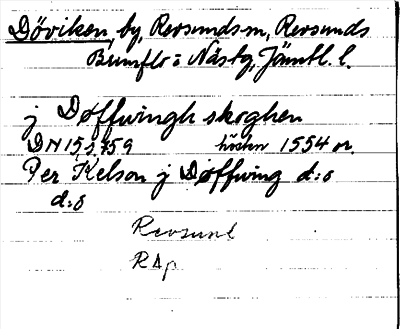 Döviken, by, Revsunds sn, Revsunds
Brunflo o Näs tg, Jämtl. l.
j Døffwingh skoghen
DN 15, s. 159 hösten 1554 or.
Per Kelson j Døffwing d:o
d:o
Revsund
RAp